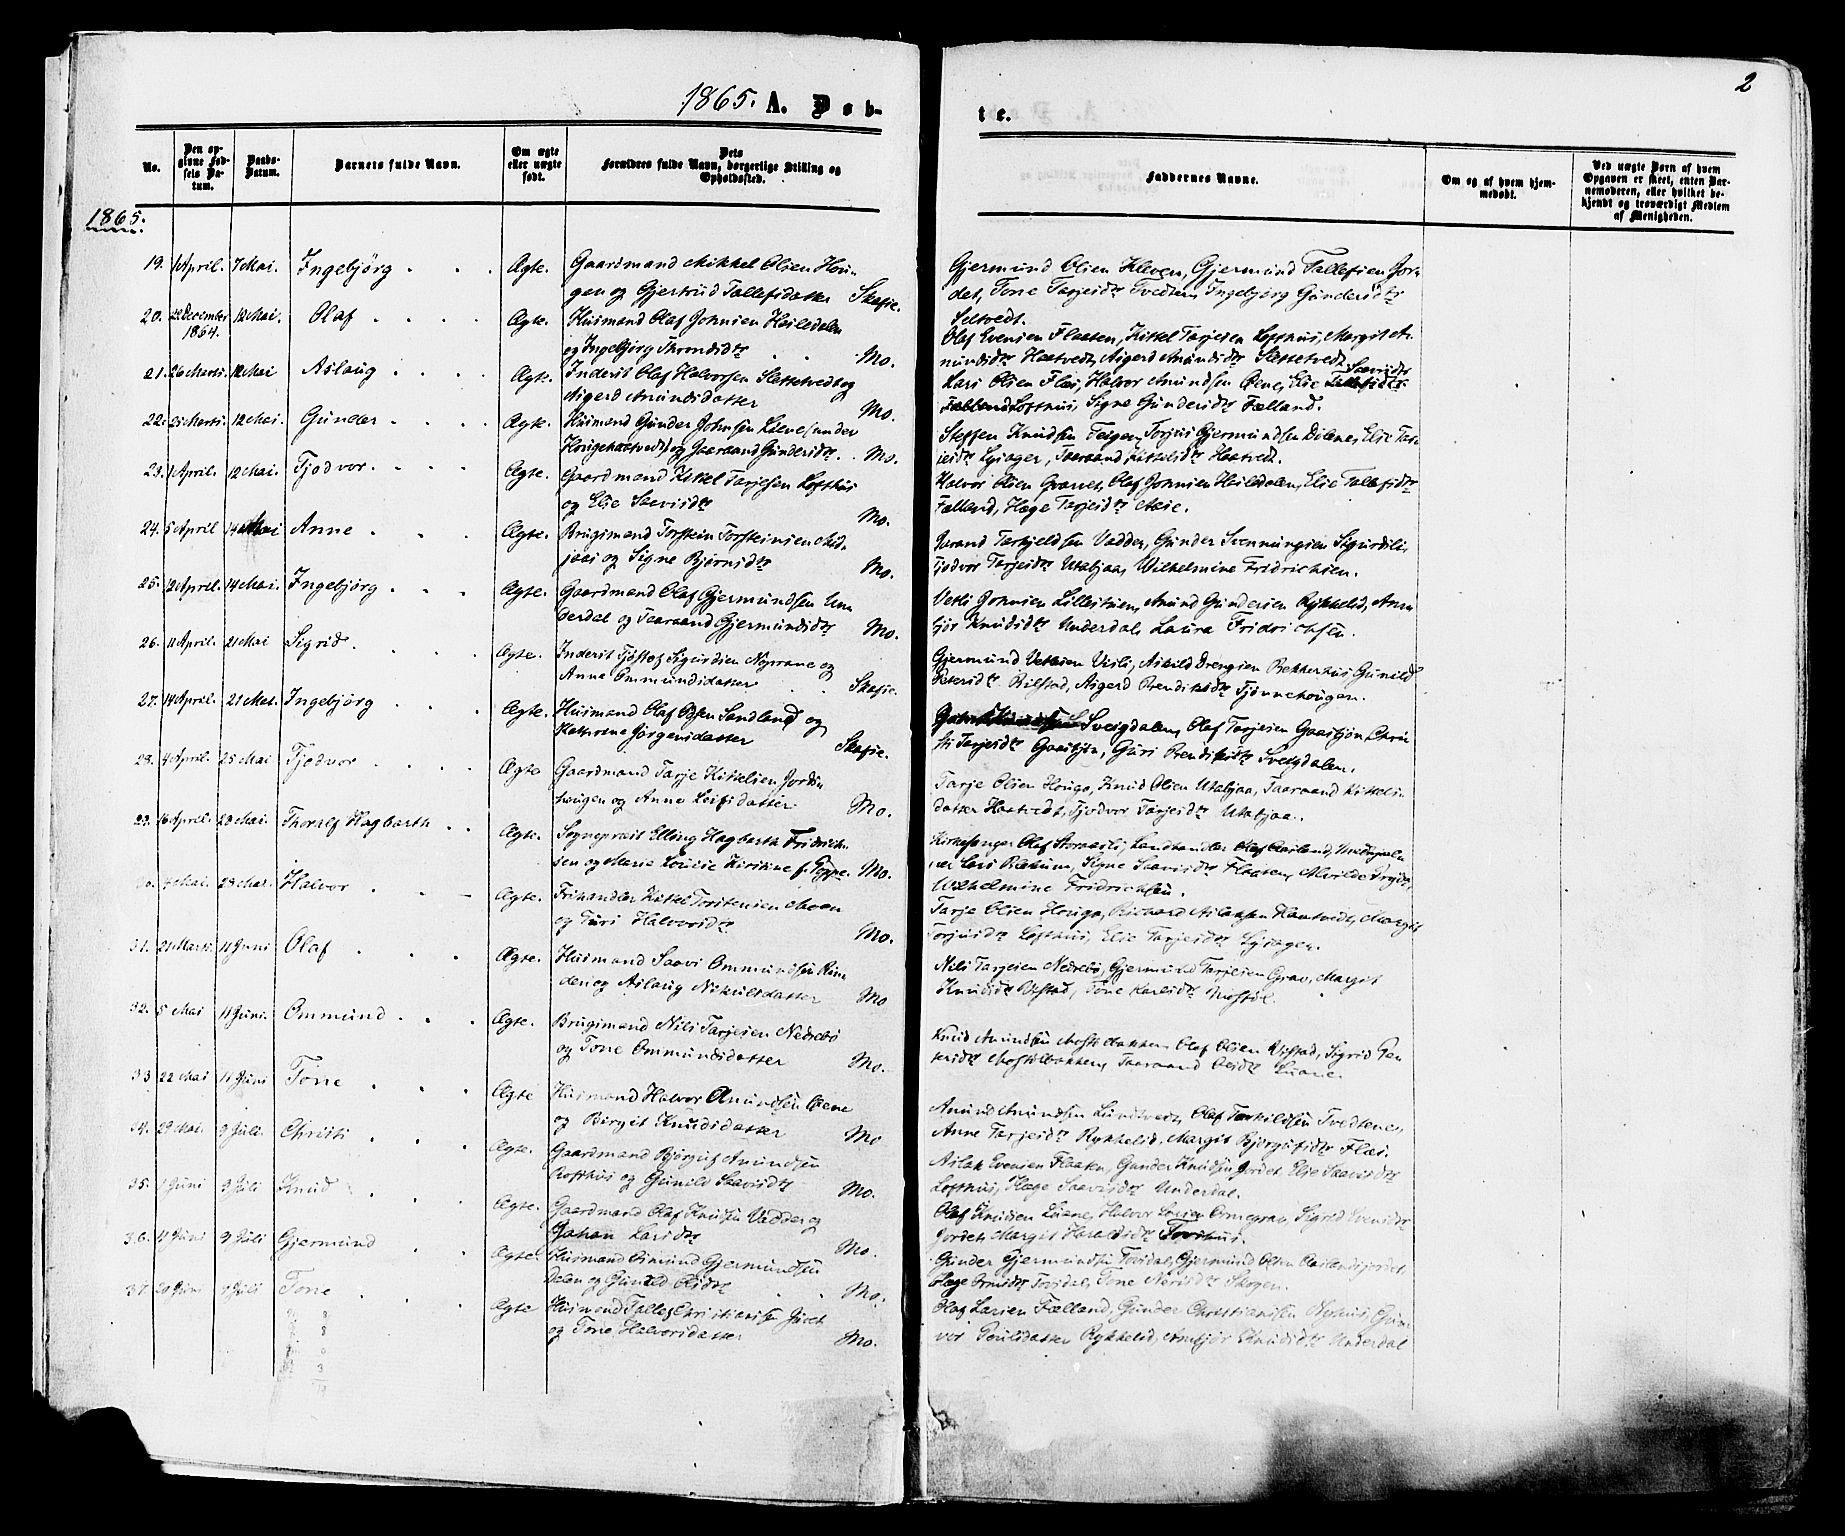 1865. A. Døb-
te.
2
No.
Den op-
givne Fød-
sels Da-
tum.
Daabs-
Datum.
Barnets fulde Navn.
Om ægte
eller uægte
født.
Dets
Forældres fulde Navn, borgerlige Stilling og
Opholdssted.
Faddernes Navne.
Om og af hvem hjem-
medøbt.
Ved uægte Børn af hvem
Opgaven er skeet, enten Bar-
nemoderen, eller hvilket be-
kjendt og troværdigt Medlem
af Menigheden.
1865.
19. 1 April. 7 Mai. Ingebjørg Ægte. Gaardmand Mikkel Olsen Hou-
gen og Gjertrud Tallefsdatter Skafse.
Gjermund Olsen Kleven, Gjermund Tallefsen Jor-
det, Tone Tarjeisdtr Tvedten, Ingebjørg Gundersdtr
Seltvedt.
20. 22 December 1864. 12 Mai. Olaf Ægte. Husmand Olaf Johnsen Heiledalen
og Ingebjørg Throndsdtr Mo.
Olaf Evensen Flaaten, Kittel Tarjeisen Lofthus, Margit A-
nundsdtr Haatvedt, Aigerd Anundsdtr Slettetvedt
21. 26 Marts. 12 Mai Aslaug Ægte. Inderst Olaf Halvorsen Slettetvedt og
Aigerd Anundsdatter Mo.
Kari Olsen Flaa, Halvor Anundsen Øene, Else Saavesdtr
Lofthus, Signe Gundersdtr Fælland.
22. 25 Marts. 12 Mai. Gunder Ægte. Husmand Gunder Johnsen Lien (under
Hougehaatvedt) og Taaraand Gundersdtr. Mo.
Steffen Knudsen Teigen, Torjus Gjermundsen Dalene, Else Tar-
jeisdtr Lysager, Taaraand Kittelsdtr Haatvedt.
23. 1 April. 12 Mai. Tjodvor Ægte. Gaardmand Kittel Tarjeisen Lofthus
og Else Saavesdtr Mo.
Halvor Olsen Gravet, Olaf Johnsen Heiledalen, Else Tallefsdtr
Fælland, Hæge Tarjeisdtr Aase.
24. 5 April 14 Mai Anne Ægte. Brugsmand Torstein Torsteinsen Mid-
jaas og Signe Bjørnsdtr Mo.
Jorand Tarkjeldsen Vadder, Gunder Svenningsen Sigurdsli,
Tjodvor Tarjeisdtr Utabjaa, Wilhelmine Fridrichsen.
25. 12 April. 14 Mai. Ingebjørg Ægte. Gaardmand Olaf Gjermundsen Un-
derdal og Taaraand Gjermundsdtr Mo.
Vetle Johnsen Lillestuen, Anund Gundersen Rykkelid, Anne
Knudsdtr Underdal, Laura Fridrichsen.
26. 11 April. 21 Mai Sigrid Ægte. Inderst Tjøstof Sigurdsen Noprane og
Anne Ommundsdatter Skafse.
Gjermund Vetlesen Visli, Askild Drengsen Bekkerhus, Gunild
Pedersdtr Bilstad, Aigerd Bendiksdtr Tjønnehougen.
27. 14 April. 21 Mai. Ingebjørg Ægte. Husmand Olaf Olsen Sandland og
Kathrine Jørgensdatter Skafse.
Sveigdalen, Olaf Tarjeisen Gaastjøn, Chri-
sti Tarjeisdtr Gaastjøn, Guri Bendiksdtr Sveigdalen.
28. 4 April. 25 Mai Tjodvor Ægte Gaardmand Tarje Kittelsen Jordin
hougen og Anne Leifsdatter Mo.
Tarje Olsen Houge, Knud Olsen Utabjaa, Taaraand Kittels-
datter Haatvedt, Tjodvor Tarjeisdtr Utabjaa.
29. 16 April. 28 Mai. Thoralf Hagbarth Ægte. Sognepræst Elling Hagbarth Fridrich-
sen og Marie Louise Kirstine f. Poppe. Mo.
Kirkesanger Olaf Storaasli, Landhandler Olaf Aaland,
Lars Bakhus, Signe Saavesdtr Flaaten, Alvilde
Wilhelmine Fridrichsen.
30. 7 Mai. 28 Mai. Halvor Ægte. Frihandler Kittel Torstensen Moen
og Guri Halvorsdtr Mo.
Tarje Olsen Houge, Richard Aslaksen Haatvedt, Margit
Torjusdtr Lofthus, Else Tarjeisdtr Lysager.
31. 21 Marts 11 Juni Olaf Ægte. Husmand Saavi Ommundsen Rin-
den og Aslaug Nikulsdatter Mo
Nils Tarjeisen Nedrebø, Gjermund Tarjeisen Grav, Margit
Knudsdtr Vistad, Tone Karlsdtr Mostøl.
32. 5 Mai 11 Juni. Ommund Ægte. Brugsmand Nils Tarjeisen Nedrebø
og Tone Ommundsdatter Mo.
Knud Anundsen Mostølbakken Olaf Olsen Vistad, Sigrid
Mostølbakken, Taaraand Olsdtr Luane.
33 22 Mai 11 Juni Tone Ægte Husmand Halvor Anundsen Øene
og Birgit Knudsdatter Mo
Anund Anundsen Lundtvedt, Olaf Torkildsen Tvedtene,
Anne Tarjeisdtr Rykkelid, Margit Bjørgufsdtr Flaa.
34. 29 Mai. 9 Juli. Christi Ægte. Gaardmand Bjørguf Anundsen
Lofthus og Gunild Saavesdtr Mo.
Aslak Evensen Flaaten, Gunder Knudsen Jordet, Else Saavesdtr
Lofthus, Hæge Saavesdtr Underdal.
35. 1 Juni 9 Juli Knud Ægte. Gaardmand Olaf Knudsen Vadder og
Johan Larsdtr Mo.
Olaf Knudsen Luane, Halvor Larsen Ormegrav, Sigrid Evensdtr
Jordet, Margit Haraldsdtr Tovshus.
36. 11 Juni 9 Juli Gjermund Ægte. Husmand Amund Gjermundsen
Dalen og Gunild Olsdtr Mo.
Gunder Gjermundsen Tovsdal, Gjermund Olsen
Hæge Tovsdal, Tone Nerisdtr Skogen.
37. 20 Juni 9 Juli Tone Ægte Husmand Tallef Christiansen Juvet
og Tone Halvorsdatter Mo.
Olaf Larsen Fælland, Gunder Christiansen Nyhus, Gun-
vor Poulsdatter Rykkelid, Knudsdtr Underdal